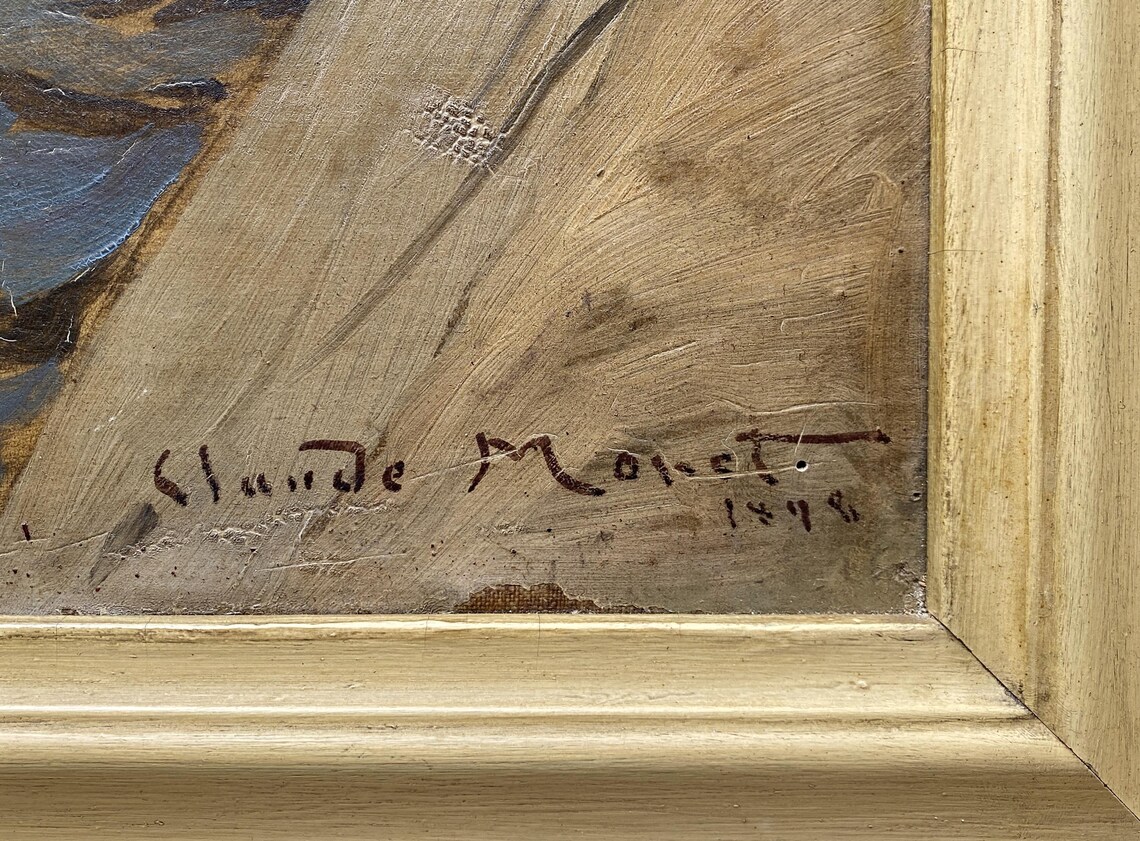 Claude Monet.
1898